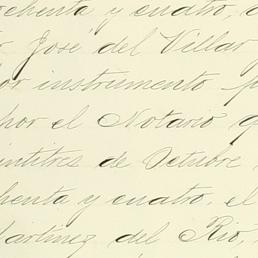 ochenta y cuatro, a
r. Jose del Villar
or instrumento p
por el Notario q
eintitres de Octubre
henta y cuatro, el
Martinez del Rio,